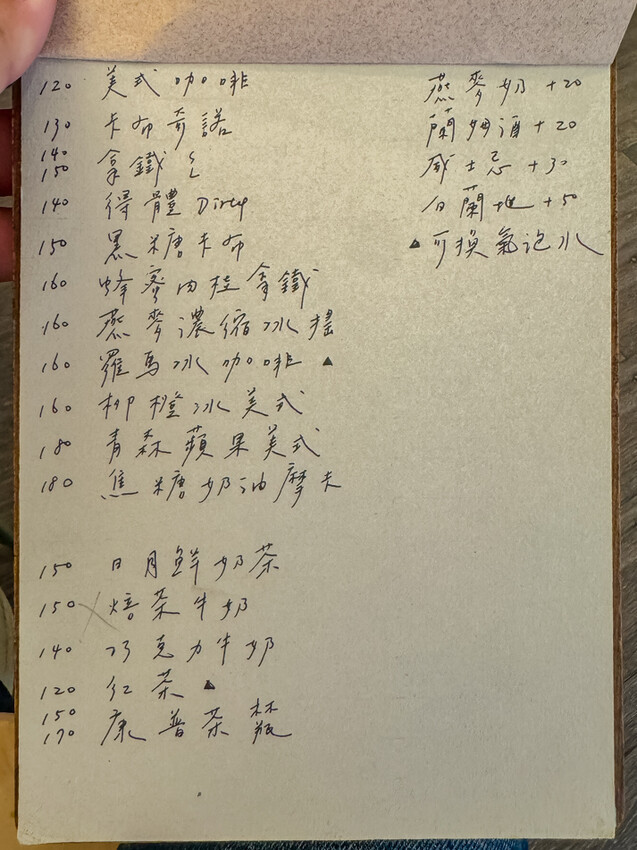 120 美式咖啡
130 卡布奇諾
140 150 拿鐵 S L
140 得體 Dirty
150 黑糖卡布
160 蜂蜜肉桂拿鐵
160 燕麥濃縮冰搖
160 羅馬冰咖啡 ▲
160 柳橙冰美式
180 青森蘋果美式
180 焦糖奶油摩卡
150 日月鮮奶茶
150 焙茶牛奶
140 巧克力牛奶
120 紅茶 ▲
150 170 康普茶 杯 瓶
燕麥奶 +20
蘭姆酒 +20
威士忌 +30
白蘭地 +50
▲可換氣泡水